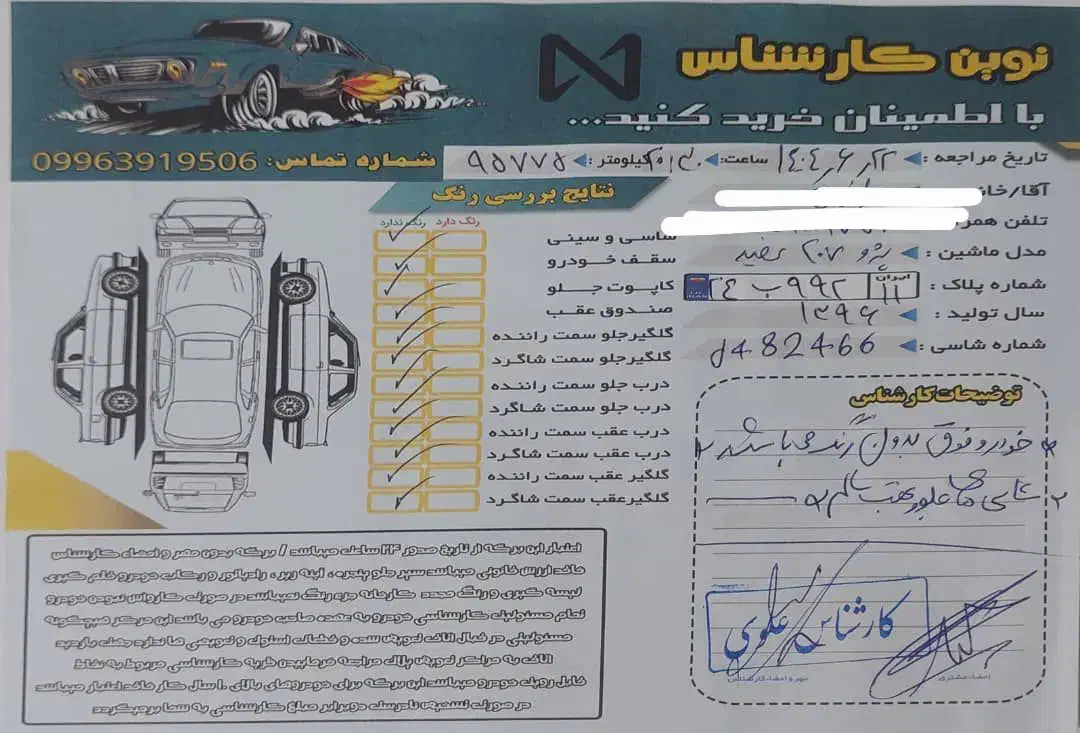 نوین کارشناس
با اطمینان خرید کنید...
تاریخ مراجعه : ۱۴۰۴٫۶٫۲۲ ساعت: ۲۰٫۱۳ کیلومتر : ۹۵۷۷۵
شماره تماس: 09963919506
آقا/خانم
تلفن همراه
مدل ماشین : پژو ۲۰۷ سفید
شماره پلاک : ایران ۱۱ ۹۹۲ ب ۲۴
سال تولید : ۱۳۹۶
شماره شاسی : d482466
نتایج بررسی رنگ
رنگ دارد رنگ ندارد
شاسی و سینی
سقف خودرو
کاپوت جلو
صندوق عقب
گلگیر جلو سمت راننده
گلگیر جلو سمت شاگرد
درب جلو سمت راننده
درب جلو سمت شاگرد
درب عقب سمت راننده
درب عقب سمت شاگرد
گلگیر عقب سمت راننده
گلگیر عقب سمت شاگرد
توضیحات کارشناس
خودرو فوق بدون رنگ می باشد
شاسی های جلو و عقب سالم
کارشناس علوی
مهر و امضاء کارشناس
امضاء مشتری
اعتبار این برگه از تاریخ صدور ۲۴ ساعت میباشد / برگه بدون مهر و امضاء کارشناس
فاقد ارزش قانونی میباشد سپر جلو پنجره ، آینه زیر ، رادیاتور و رکاب خودرو قلم گیری
لیسه گیری و رنگ مجدد کارخانه جزء رنگ نمیباشد در صورت کارواش نبودن خودرو
تمام مسئولیت کارشناسی خودرو به عهده صاحب خودرو می باشد این مرکز هیچگونه
مسئولیتی در قبال اتاق تعویض شده و قطعات استوک و تعویضی ها ندارد جهت بازدید
اتاق به مراکز تعویض پلاک مراجعه فرمایید هزینه کارشناسی مربوط به نقاط
قابل رویت خودرو میباشد این برگه برای خودروهای بالای ۱۰ سال کار فاقد اعتبار میباشد
در صورت تشخیص نادرست دوبرابر مبلغ کارشناسی به شما برمیگردد